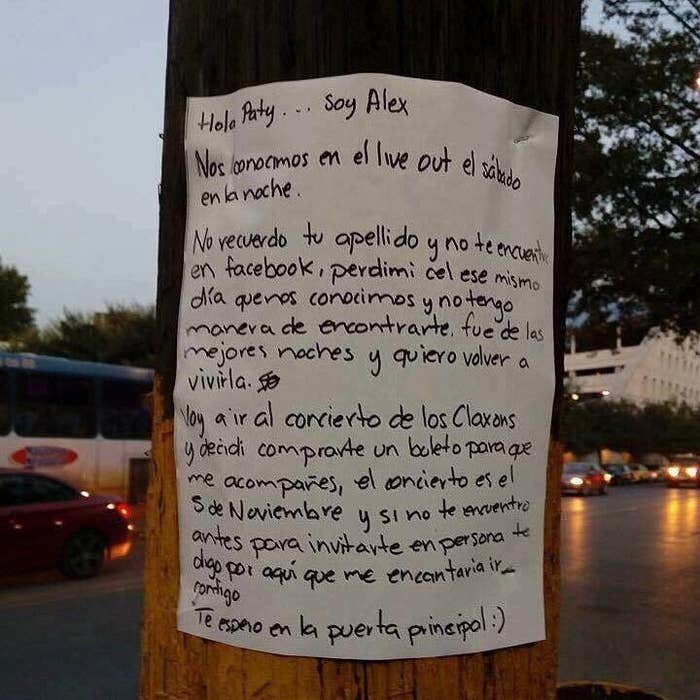 Hola Paty... soy Alex
Nos conocimos en el live out el sábado
en la noche.
No recuerdo tu apellido y no te encuentro
en facebook, perdimi cel ese mismo
día que nos conocimos y no tengo
manera de encontrarte. fue de las
mejores noches y quiero volver a
vivirla.
Voy a ir al concierto de los Claxons
y decidi comprarte un boleto para que
me acompañes, el concierto es el
5 de Noviembre y si no te encuentro
antes para invitarte en persona te
digo por aquí que me encantaria ir
contigo
Te espero en la puerta principal :)